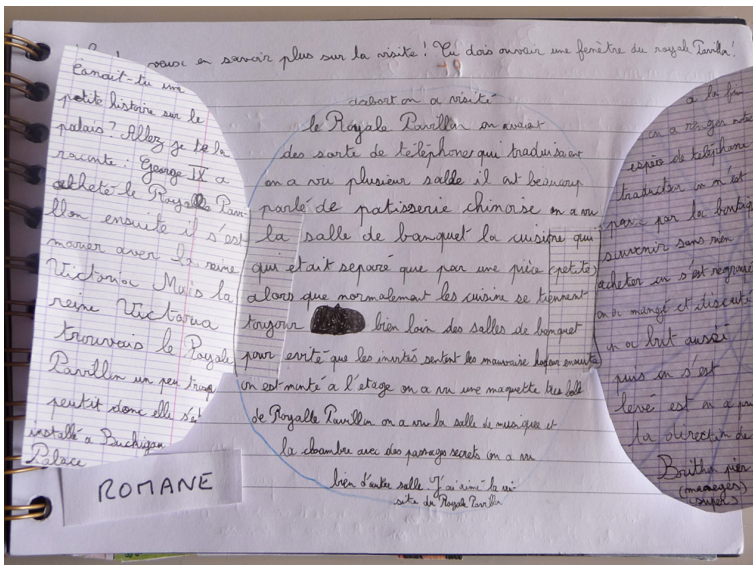 veux en savoir plus sur la visite ! Tu dois ouvrir une fenêtre du royale Pavillon !
Conait-tu une
petite histoire sur le
palais ? Allez je te la
raconte : George IV a
acheté le Royale Pavi-
llon ensuite il s'est
marier avec la reine
Victoria Mais la
reine Victoria
trouvais le Royale
Pavillon un peu trop
peutit donc elle s'est
installé a Buckigan
Palace
ROMANE
dabort on a visité
le Royale Pavillon on avait
des sorte de téléphone qui traduisaient
on a vu plusieur salle il ont beaucoup
parlé de patisserie chinoise on a vu
la salle de banquet la cuisine qui
qui était separé que par une pièce (petite)
alors que normalement les cuisine se tiennent
toujour bien loin des salles de banquet
pour evité que les invités sentent les mauvaise ensuite
on est monté a l'étage on a vu une maquette très belle
de Royalle Pavillon on a vu la salle de musique et
la chambre avec des passages secrets on a vu
bien d'autre salle. J'ai aimé la vi-
site du Royale Pavillon
a la fin
on a rengen notre
espèce de téléphone
traducteur on n'est
passé par la boutique
souvenir sans rien
acheter on s'est regroupé
on a mangé et discuté
on a but aussi
puis on s'est
levé est on a pris
la direction du
Brithon pier
(maneges
super)